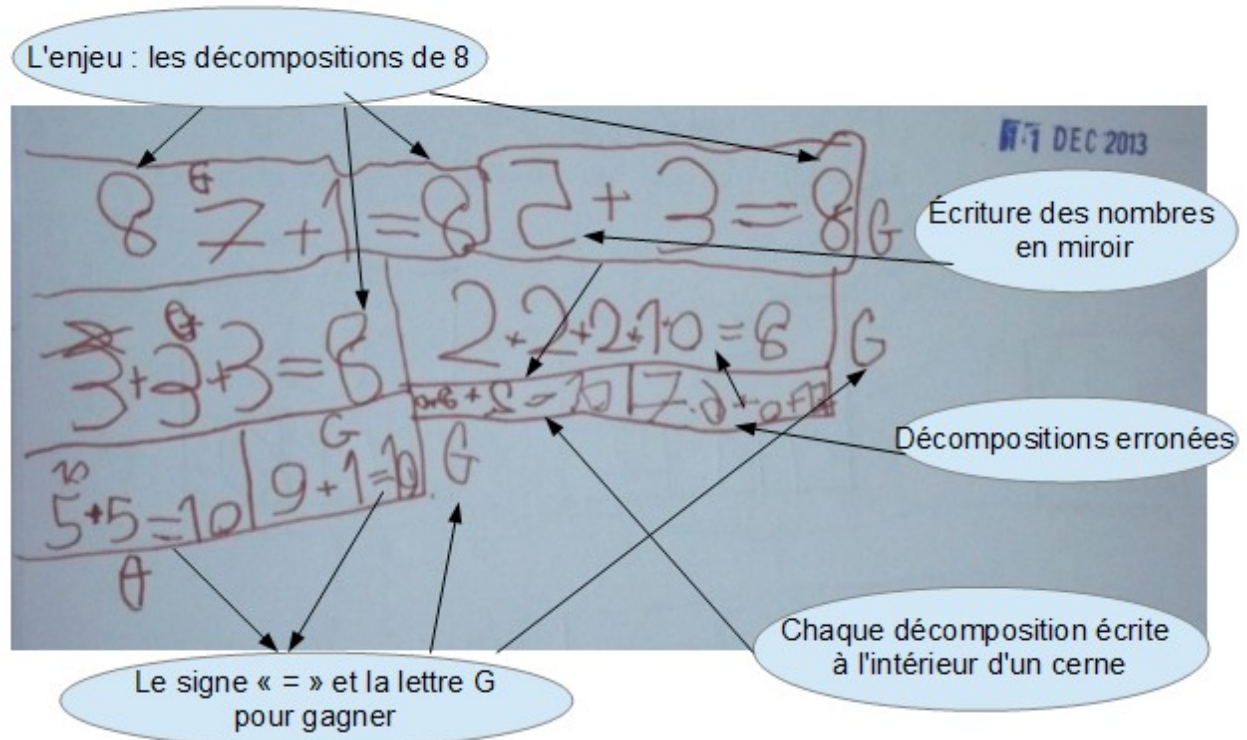 L'enjeu : les décompositions de 8
11 DEC 2013
8 7 + 1 = 8
G
5 + 3 = 8 G
Écriture des nombres
en miroir
3 + 3 + 3 = 8
G
2 + 2 + 2 + 10 = 8 G
Décompositions erronées
10
5 + 5 = 10
G
9 + 1 = 10
G
G
Chaque décomposition écrite
à l'intérieur d'un cerne
Le signe « = » et la lettre G
pour gagner